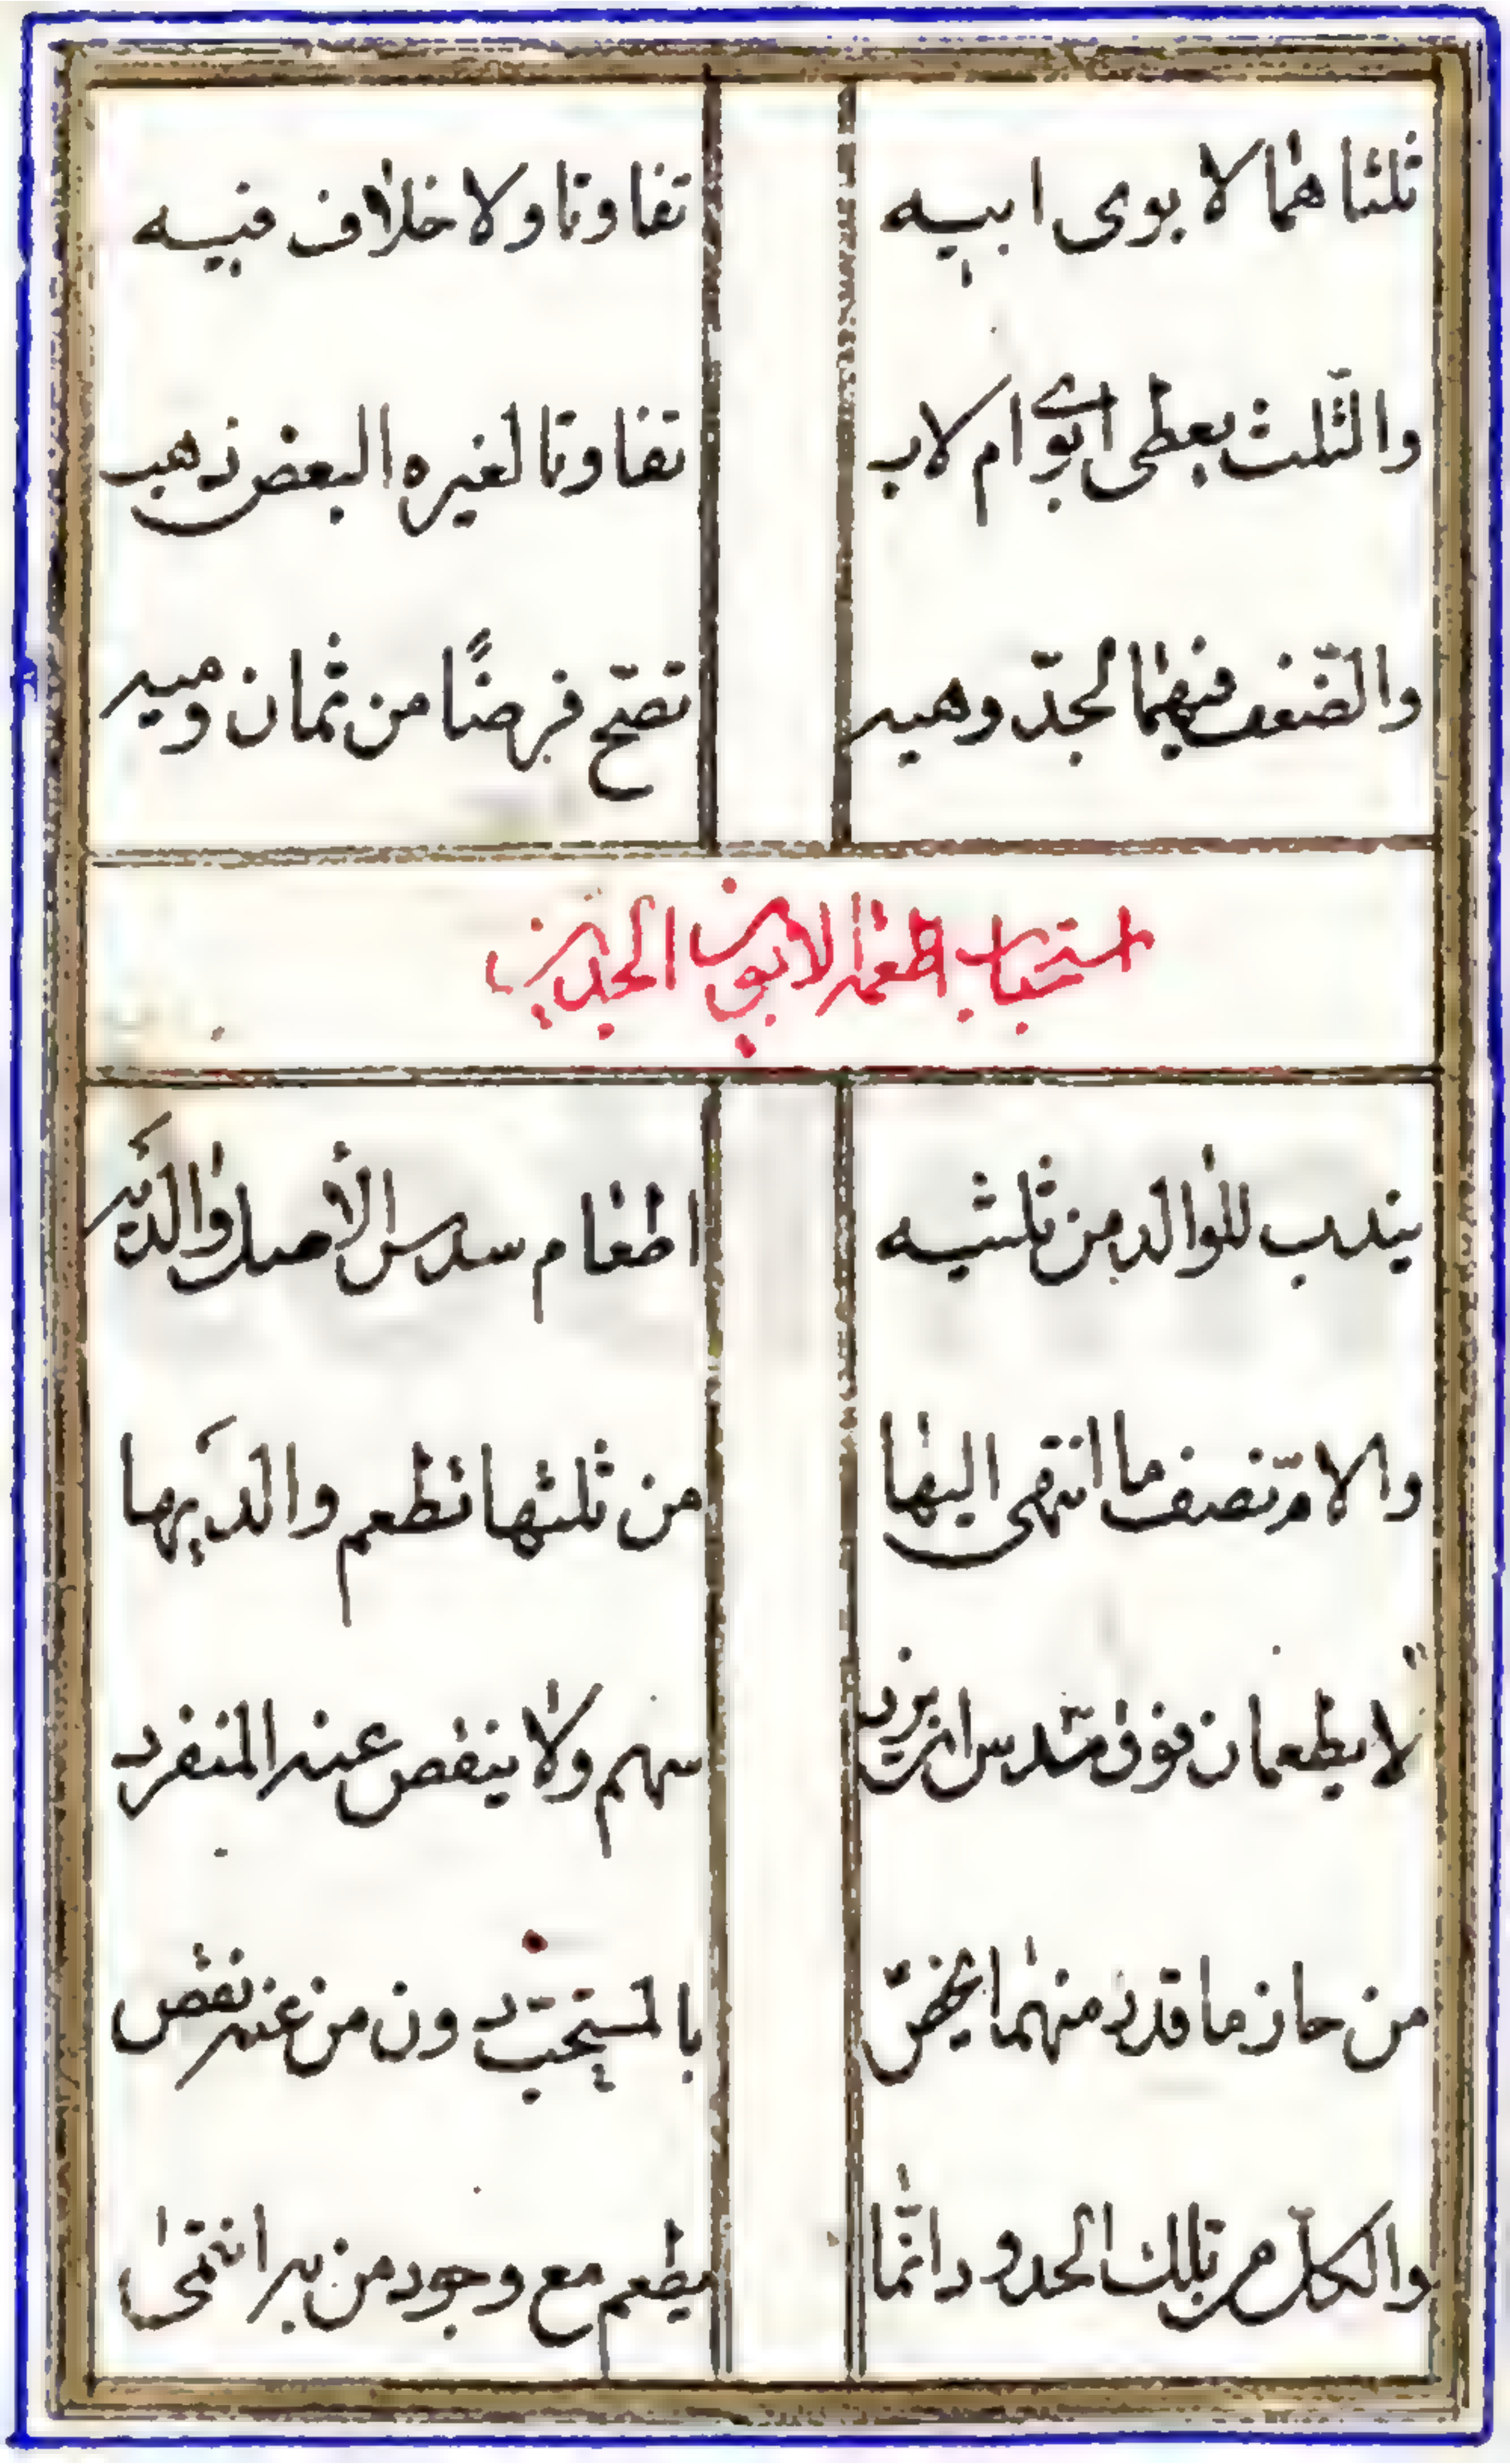 ثلثاهما لابوى ابيه تفاوتا ولا خلاف فيه
والثّلث يعطى ابوي ام لاب تفاوتا لغيره البعض ذهب
والضّعف فيهما لجدّ وهيه تصّح فرضًا من ثمان وميه
استحباب اطعام الابوين الجدين
يندب للوالد من ثلثيه اطعام سدس الأصل والدَيه
والامّ نصف ما انتهى اليها من ثلثها تطعم والدَيها
لا يطعمان فوق سدس ان يزد سهم ولا ينقص عنه المنفرد
من حاز ما قدر منهما يخصّ بالمستحبّ دون من عنه نقص
والكلّ من تلك الحدود انّما يطعم مع وجود من به انتمى